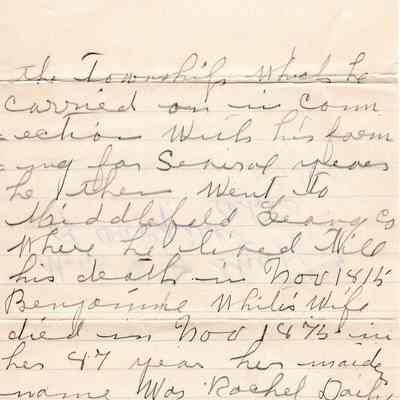 the Township which he
carried on in conn
ection With his farm
ing for Several years
he then Went To
Middlefield Geauga Co
Where he lived Till
his death in Nov 1815
Benjamine White's Wife
died in Nov 1875 in
her 47 year her maide
name Was Rachel Daily